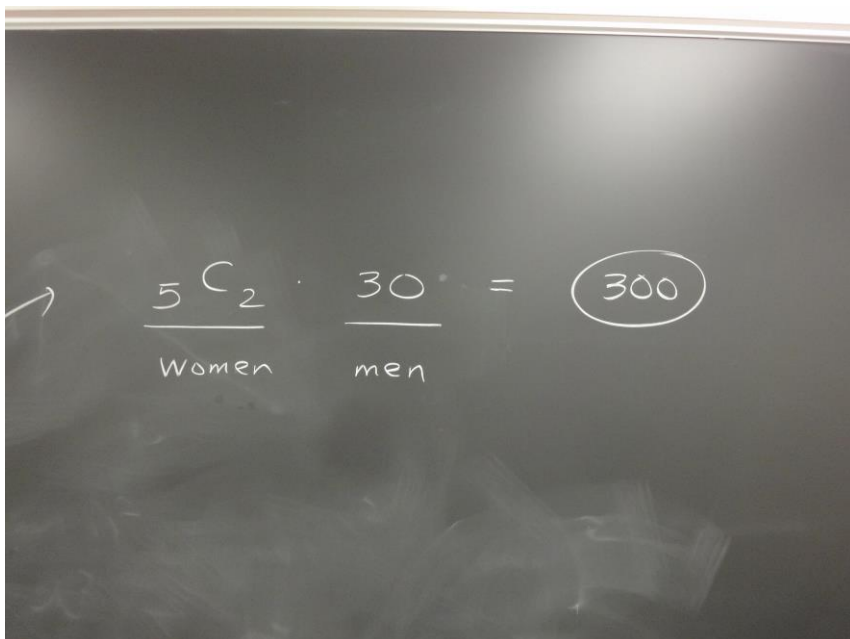 ₅C₂ · 30 = 300
women men